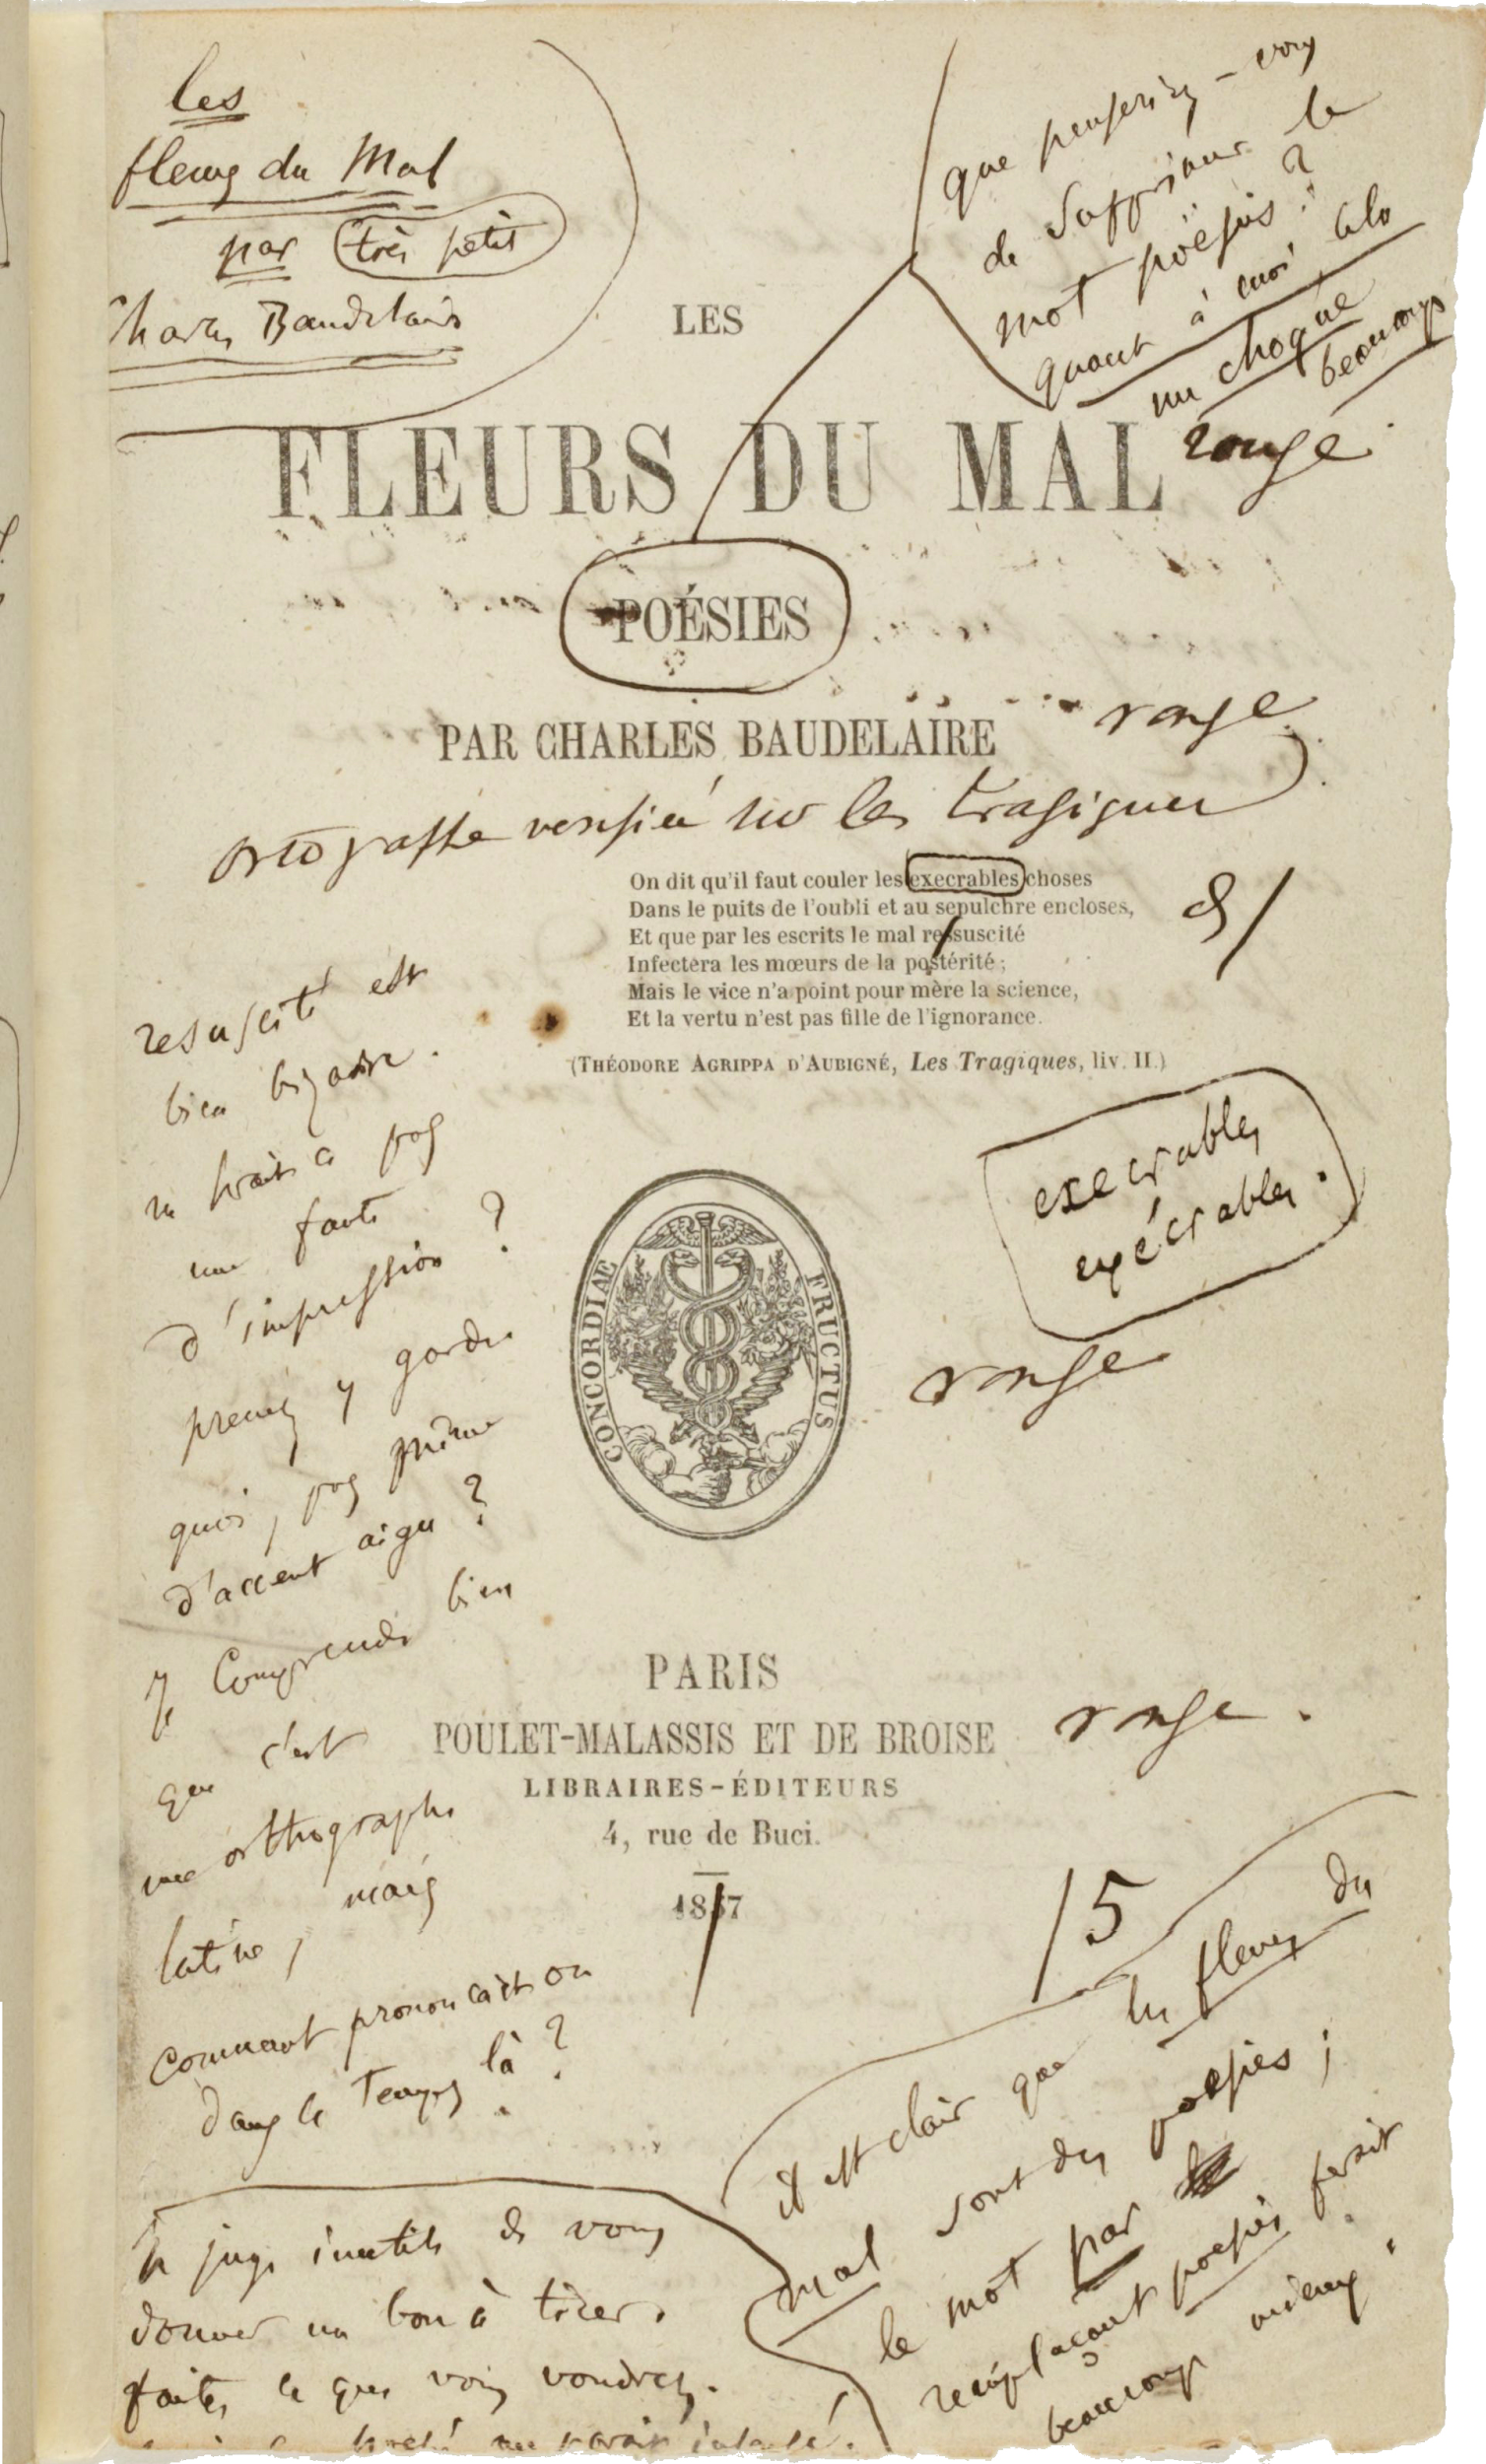 les
fleurs du Mal
par très petit
Charles Baudelaire
que penseriez-vous
de supprimer le
mot poësies ?
quant à moi cela
me choque
beaucoup
LES
FLEURS DU MAL
rouge
POÉSIES
PAR CHARLES BAUDELAIRE
rouge
ortographe verifiée sur les tragiques
On dit qu'il faut couler les execrables choses
Dans le puits de l'oubli et au sepulchre encloses,
Et que par les escrits le mal ressuscité
Infectera les mœurs de la postérité ;
Mais le vice n'a point pour mère la science,
Et la vertu n'est pas fille de l'ignorance.
(THÉODORE AGRIPPA D'AUBIGNÉ, Les Tragiques, liv. II.)
resuscité est
bien bizarre.
ne serait ce pas
une faute
d'impression ?
prenez y garde
quoi, pas même
d'accent aigu ?
Je comprends bien
que c'est
une orthographe
latine, mais
comment prononçait on
dans ce temps là ?
execrables
exécrables.
rouge
CONCORDIAE FRUCTUS
PARIS
POULET-MALASSIS ET DE BROISE
rouge.
LIBRAIRES-ÉDITEURS
4, rue de Buci.
1857
/5
il est clair que les fleurs du
mal sont des poesies ;
le mot par
remplaçant poesies ferait
beaucoup mieux.
Je juge inutile de vous
donner un bon à tirer.
faites ce que vous voudrez.